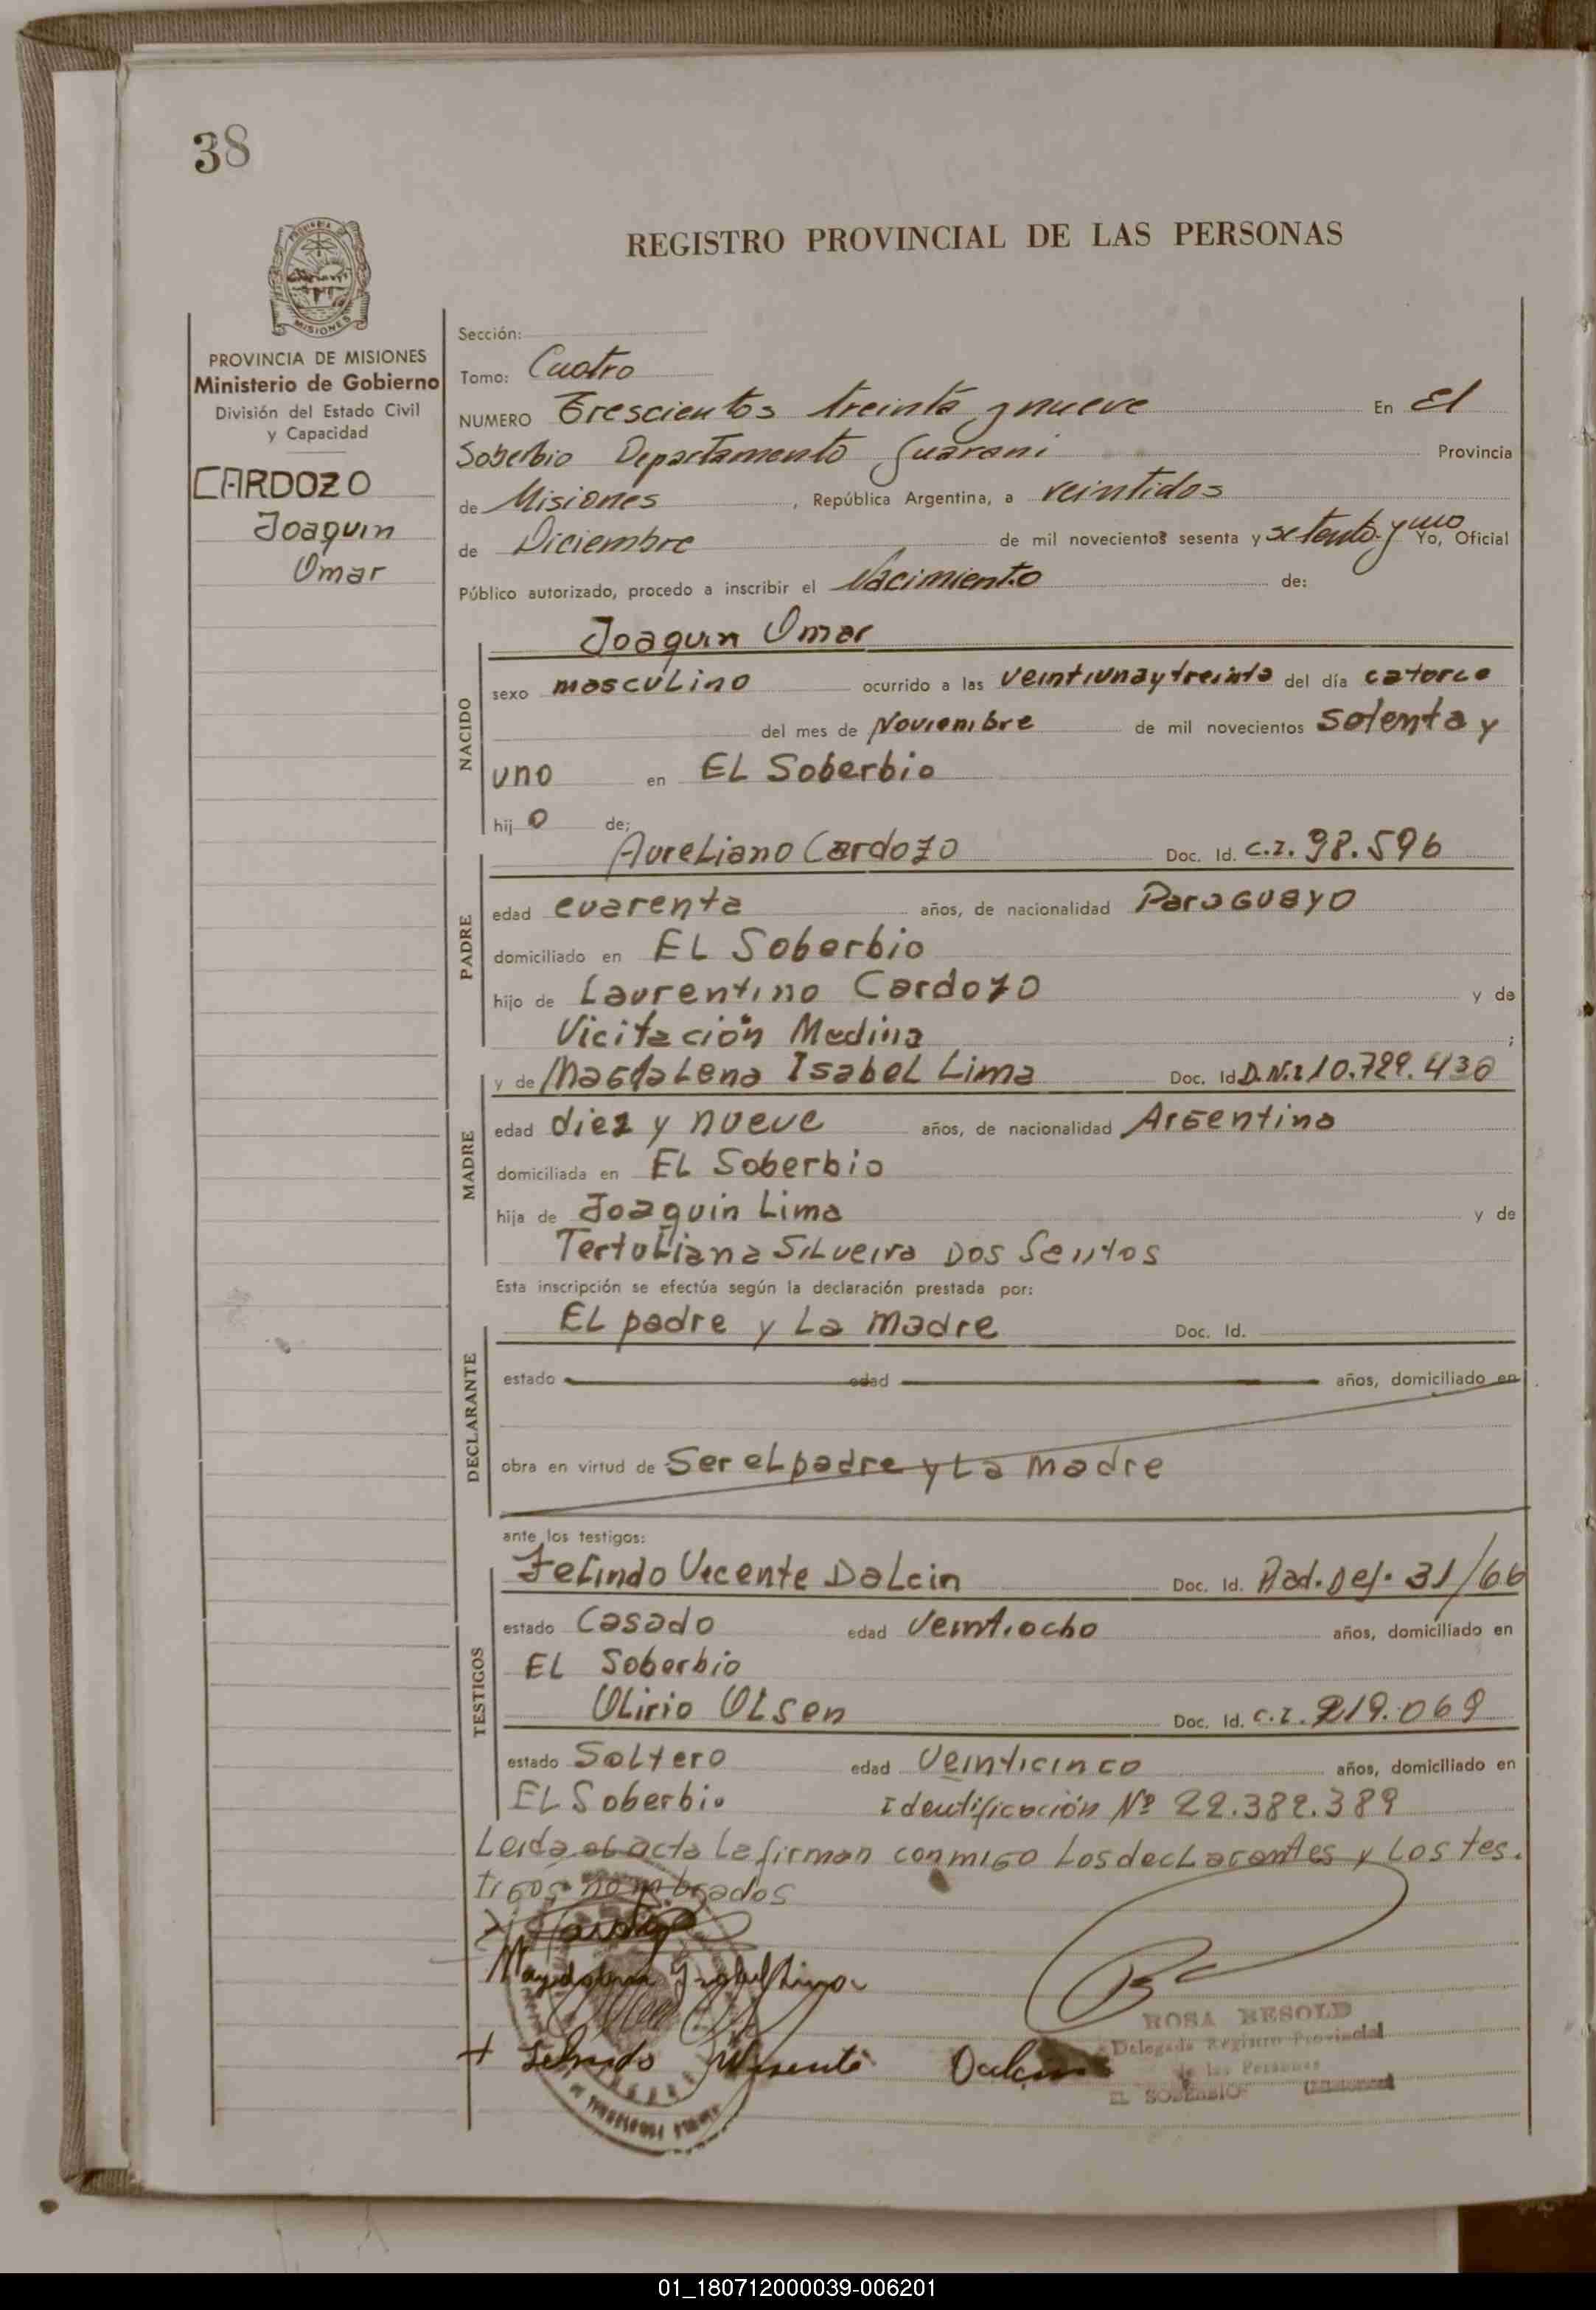 38
REGISTRO PROVINCIAL DE LAS PERSONAS
MISIONES
PROVINCIA DE MISIONES
Ministerio de Gobierno
División del Estado Civil
y Capacidad
CARDOZO
Joaquin
Omar
Sección:
Tomo: Cuatro
NUMERO Trescientos treinta y nueve En El
Soberbio Departamento Guarani Provincia
de Misiones, República Argentina, a veintidos
de Diciembre de mil novecientos sesenta y setenta y uno Yo, Oficial
Público autorizado, procedo a inscribir el Nacimiento de:
NACIDO
Joaquin Omar
sexo masculino ocurrido a las veintiuna y treinta del día catorce
del mes de Noviembre de mil novecientos setenta y
uno en EL Soberbio
hijo de:
PADRE
Aureliano Cardozo Doc. Id. C.I. 98.596
edad cuarenta años, de nacionalidad Paraguayo
domiciliado en EL Soberbio
hijo de Laurentino Cardozo y de
Vicitación Medina;
MADRE
y de Magdalena Isabel Lima Doc. Id. D.N.I 10.789.430
edad diez y nueve años, de nacionalidad Argentina
domiciliada en EL Soberbio
hija de Joaquin Lima y de
Tertuliana Silveira Dos Santos
Esta inscripción se efectúa según la declaración prestada por:
DECLARANTE
EL padre y La madre Doc. Id.
estado edad años, domiciliado en
obra en virtud de Ser el padre y La madre
ante los testigos:
TESTIGOS
Felindo Vicente Dalcin Doc. Id. 31/66
estado Casado edad Veintiocho años, domiciliado en
EL Soberbio
Ulirio Olsen Doc. Id. C.I. 219.069
estado Soltero edad Veinticinco años, domiciliado en
EL Soberbio Identificación Nº 22.382.389
Leida el acta la firman conmigo Los declarantes y Los tes.
tigos nombrados
Magdalena Isabel Lima
Felindo Vicente Dalcin
ROSA BESOLD
Delegada Registro Provincial
de las Personas
EL SOBERBIO (Misiones)
01_180712000039-006201